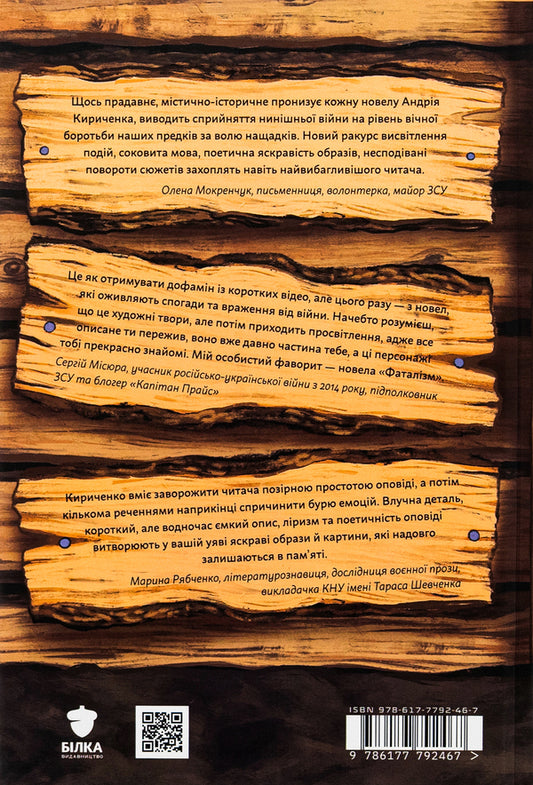 Щось прадавнє, містично-історичне пронизує кожну новелу Андрія
Кириченка, виводить сприйняття нинішньої війни на рівень вічної
боротьби наших предків за волю нащадків. Новий ракурс висвітлення
подій, соковита мова, поетична яскравість образів, несподівані
повороти сюжетів захоплять навіть найвибагливішого читача.
Олена Мокренчук, письменниця, волонтерка, майор ЗСУ
Це як отримувати дофамін із коротких відео, але цього разу — з новел,
які оживляють спогади та враження від війни. Начебто розумієш,
що це художні твори, але потім приходить просвітлення, адже все
описане ти пережив, воно вже давно частина тебе, а ці персонажі
тобі прекрасно знайомі. Мій особистий фаворит — новела «Фаталізм».
Сергій Місюра, учасник російсько-української війни з 2014 року, підполковник
ЗСУ та блогер «Капітан Прайс»
Кириченко вміє заворожити читача позірною простотою оповіді, а потім
кількома реченнями наприкінці спричинити бурю емоцій. Влучна деталь,
короткий, але водночас ємкий опис, ліризм та поетичність оповіді
витворюють у вашій уяві яскраві образи й картини, які надовго
залишаються в пам’яті.
Марина Рябченко, літературознавиця, дослідниця воєнної прози,
викладачка КНУ імені Тараса Шевченка
БІЛКА
ВИДАВНИЦТВО
ISBN 978-617-7792-46-7
9 786177 792467 >